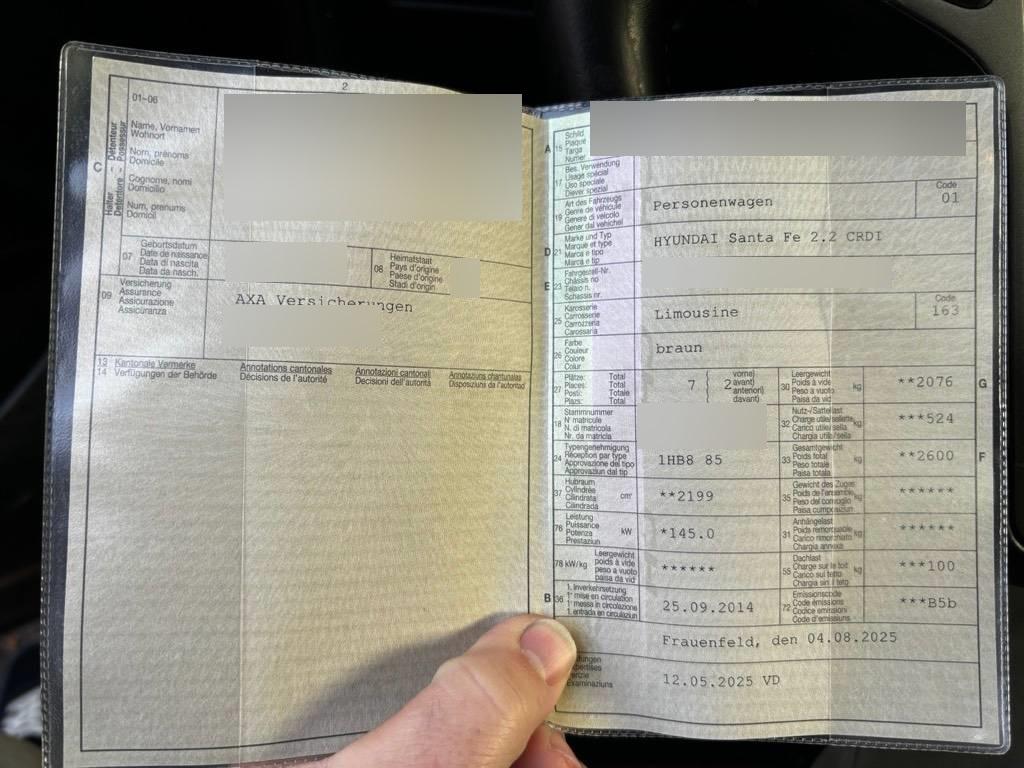 2
01-06
Halter - Détenteur
Detentore - Possessur
C
Name, Vornamen
Wohnort
Nom, prénoms
Domicile
Cognome, nomi
Domicilio
Num, prenums
Domicil
07
Geburtsdatum
Date de naissance
Data di nascita
Data da nasch.
08
Heimatstaat
Pays d'origine
Paese d'origine
Stadi d'origin
09
Versicherung
Assurance
Assicurazione
Assicuranza
AXA Versicherungen
13 Kantonale Vermerke Annotations cantonales Annotazioni cantonali Annotaziuns chantunalas
14 Verfügungen der Behörde Décisions de l'autorité Decisioni dell'autorità Disposiziuns da l'autoritad
A 15
Schild
Plaque
Targa
Numer
17
Bes. Verwendung
Usage spécial
Uso speciale
Diever spezial
19
Art des Fahrzeugs
Genre de véhicule
Genere di veicolo
Gener dal vehichel
Personenwagen
Code
01
D 21
Marke und Typ
Marque et type
Marca e tipo
Marca e tip
HYUNDAI Santa Fe 2.2 CRDI
E 23
Fahrgestell-Nr.
Châssis no
Telaio n.
Schassis nr.
25
Karosserie
Carrosserie
Carrozzeria
Carossaria
Limousine
Code
163
26
Farbe
Couleur
Colore
Colur
braun
27
Plätze: Total
Places: Total
Posti: Totale
Plazs: Total
7 { 2
vorne)
avant)
anteriori)
davant)
30
Leergewicht
Poids à vide
Peso a vuoto
Paisa da vid
kg
**2076
G
18
Stammnummer
N° matricule
N. di matricola
Nr. da matricla
32
Nutz-/Sattellast
Charge utile/sellette
Carico utile/sella
Chargia utila/sella
kg
***524
24
Typengenehmigung
Réception par type
Approvazione del tipo
Approvaziun dal tip
1HB8 85
33
Gesamtgewicht
Poids total
Peso totale
Paisa totala
kg
**2600
F
37
Hubraum
Cylindrée
Cilindrata
Cilindrada
cm³
**2199
35
Gewicht des Zuges
Poids de l'ensemble
Peso del convoglio
Paisa cumposiziun
kg
******
76
Leistung
Puissance
Potenza
Prestaziun
kW
*145.0
31
Anhängelast
Poids remorquable
Carico rimorchiato
Chargia annexa
kg
******
78 kW/kg
Leergewicht
poids à vide
peso a vuoto
paisa da vid
******
55
Dachlast
Charge sur le toit
Carico sul tetto
Chargia sin il tetg
kg
***100
B 36
1. Inverkehrsetzung
1re mise en circulation
1a messa in circolazione
1. entrada en circulaziun
25.09.2014
72
Emissionscode
Code émissions
Codice emissioni
Code d'emissiuns
***B5b
Frauenfeld, den 04.08.2025
12.05.2025 VD